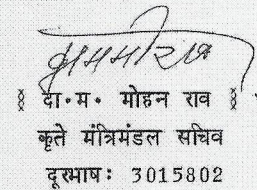 § दा॰म॰ मोहन राव §
कृते मंत्रिमंडल सचिव
दूरभाषः 3015802